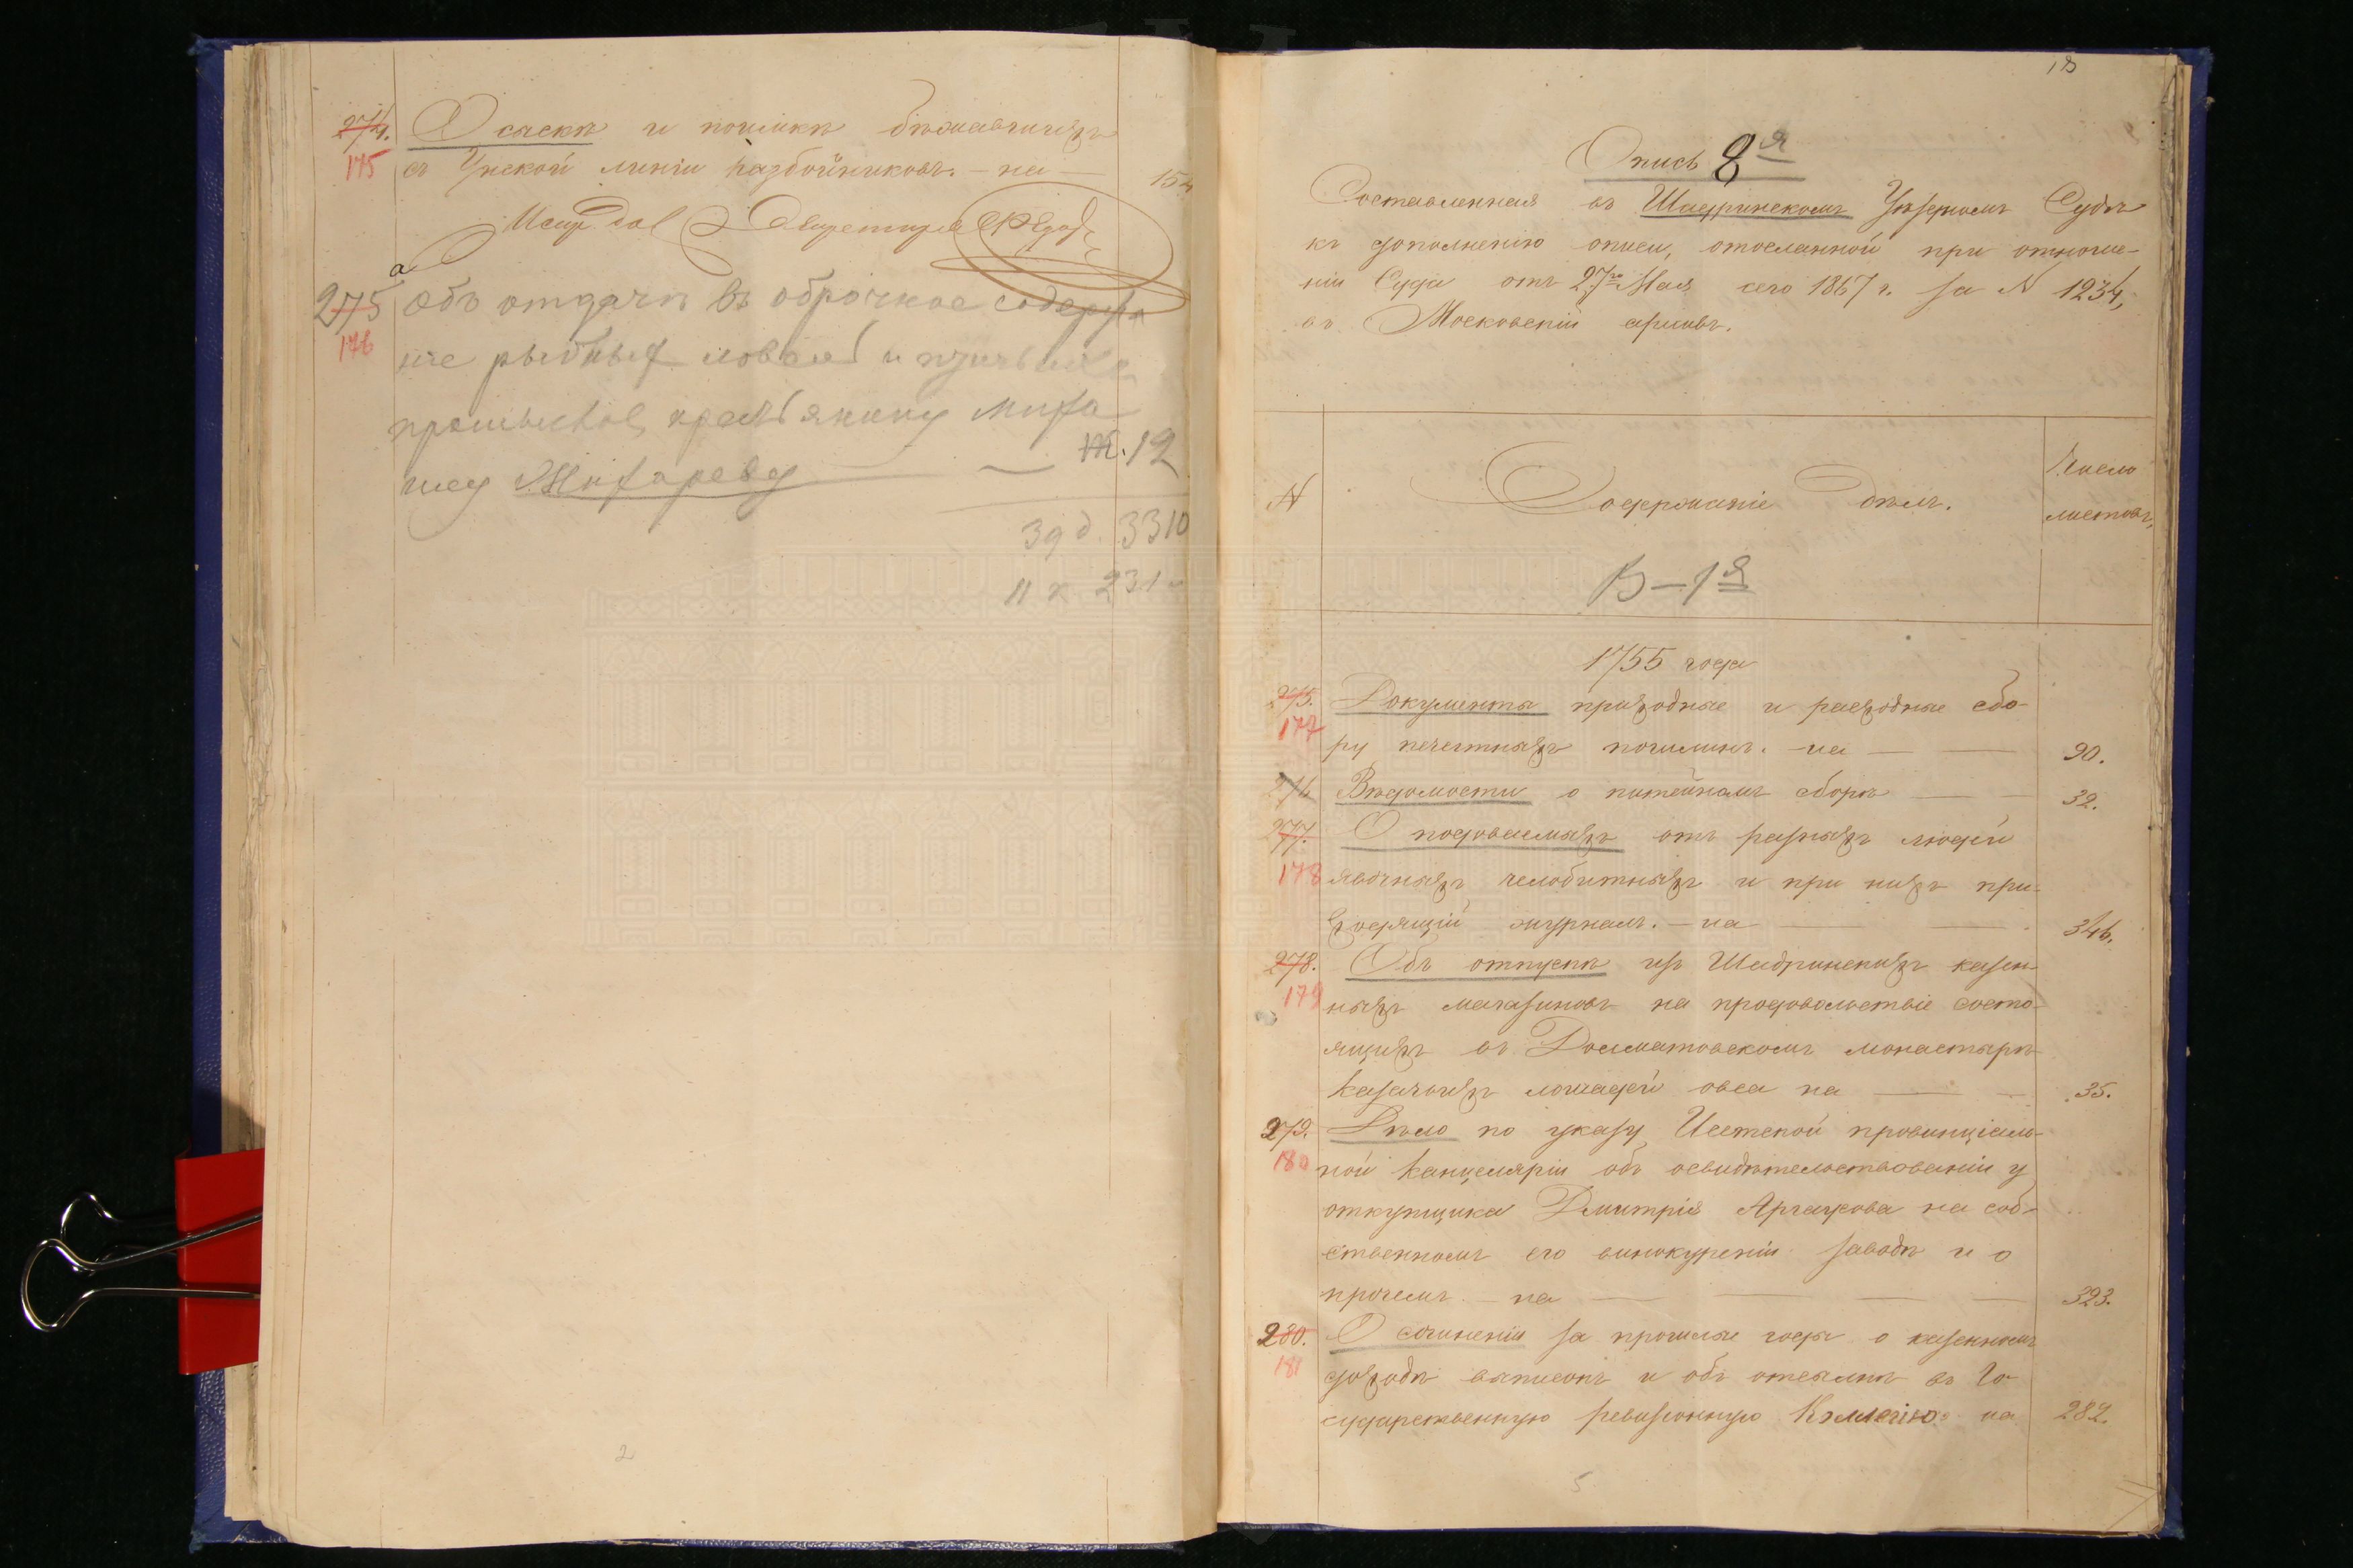 274.
175
О сыскѣ и поимкѣ бѣжавшихъ
съ Уйской линіи разбойниковъ. – на – 154
Секретарь
275 а
176
Объ отдачѣ въ оброчное содержа
ніе рыбныхъ ловель и
промысловъ крестьянину
шеу — 12
39 д. 3310
11 к 231
2
18
Опись 8я
Составленная въ Шадринскомъ Уѣздномъ Судѣ
къ дополнению описи, отосланной при отноше-
ніи Суда отъ 27го Мая сего 1867 г. за N 1234,
въ Московскій архивъ.
N
Содержаніе дѣлъ.
Число
листовъ,
В – 1я
1755 года
275.
177
Документы приходные и расходные сбо-
ру печатныхъ пошлинъ. – на — 90.
276 Вѣдомости о питейномъ сборѣ — 32.
277.
178
О подоваемыхъ отъ разныхъ людей
явочныхъ челобитныхъ и при нихъ при-
ходящій журналъ. – на — 346.
278.
179
Объ отпускѣ изъ Шадринскихъ казен-
ныхъ магазиновъ на продовольствіе состо-
ящихъ въ Долматовскомъ монастырѣ
казачьихъ лошадей овса на — 35.
279.
180
Дѣло по указу Исетской провинціаль-
ной канцеляріи объ освидѣтельствованіи у
откупщика Дмитрія на соб-
ственномъ его винокуреніи заводѣ и о
прочемъ – на — 323.
280.
181
О сочиненіи за прошлые годы о казенномъ
доходѣ выписокъ и объ отсылкѣ въ Го-
сударственную ревизіонную Коллегію на 282.
5